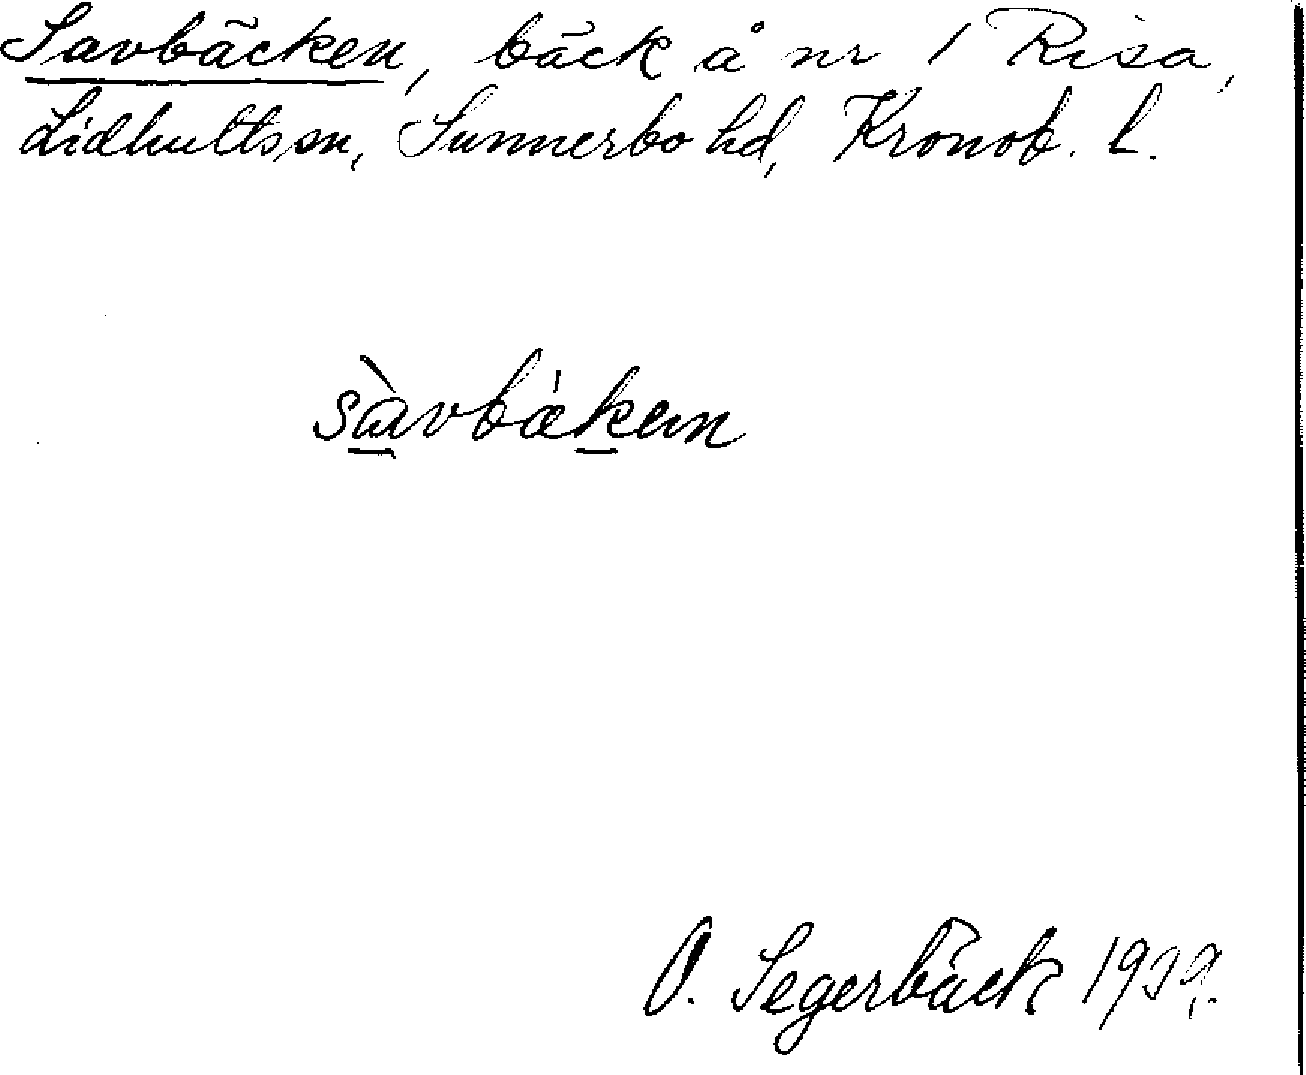 Savbäcken, bäck å nr 1 Risa,
Lidhults sn, Sunnerbo hd, Kronob. l.
sàvbǽken
O. Segerbäck 1939.